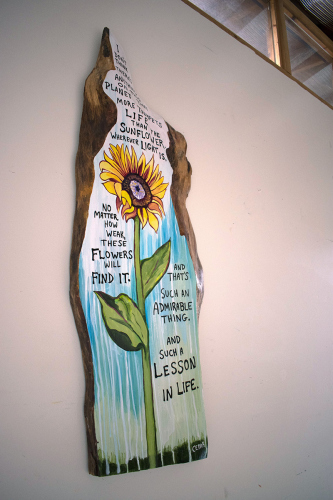 I
PLANET
MORE
LIFE
THAN THE
SUNFLOWER
WHEREVER LIGHT IS.
NO
MATTER
HOW
WEAK,
THESE
FLOWERS
WILL
FIND IT.
AND
THAT'S
SUCH AN
ADMIRABLE
THING.
AND
SUCH A
LESSON
IN LIFE.